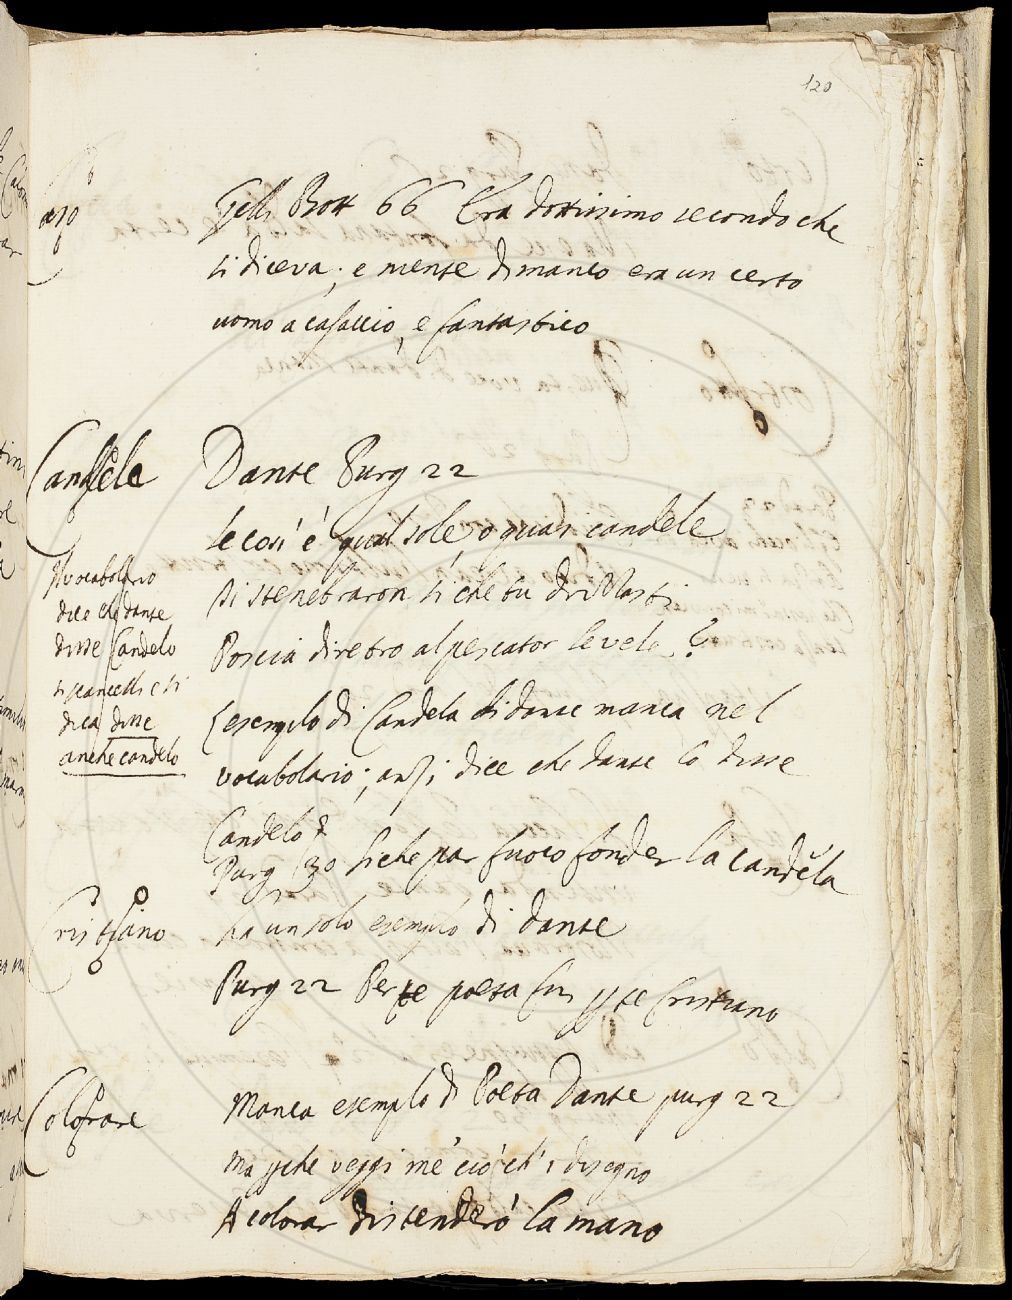 120
Caso
Gelli Bott 66 Era dottissimo secondo che
si diceva; e niente di manco era un certo
uomo a casaccio, e fantastico
Candele
Dante Purg 22
se cosi è qual sole, o quai candele
Di stenebraron si che tu drizzasti
Poscia diretro al pescator le vele?
l'esempio di Candela di dante manca nel
vocabolario; anzi dice che dante lo disse
Candelo
Purg 30 siche par fuoco fonder la candela
il vocabolario
dice che dante
disse Candelo
si scancelli e si
dica disse
anche candelo
Cristiano
ha un solo esempio di dante
Purg 22 Per te poeta fui p te Cristiano
Colorare
Manca esempio di Poeta Dante purg 22
Ma pche veggi me' ciò ch'i disegno
A colorar distenderò la mano